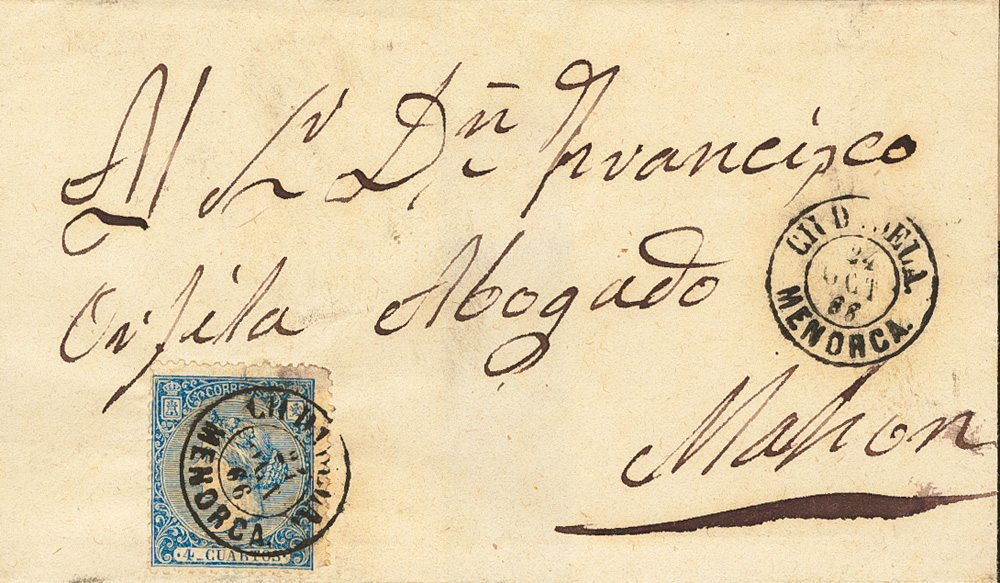 Al Sr Dn Francisco
Orfila Abogado
Mahon
24
OCT
66
MENORCA.
CORREOS
MENORCA
66
4 CUARTOS